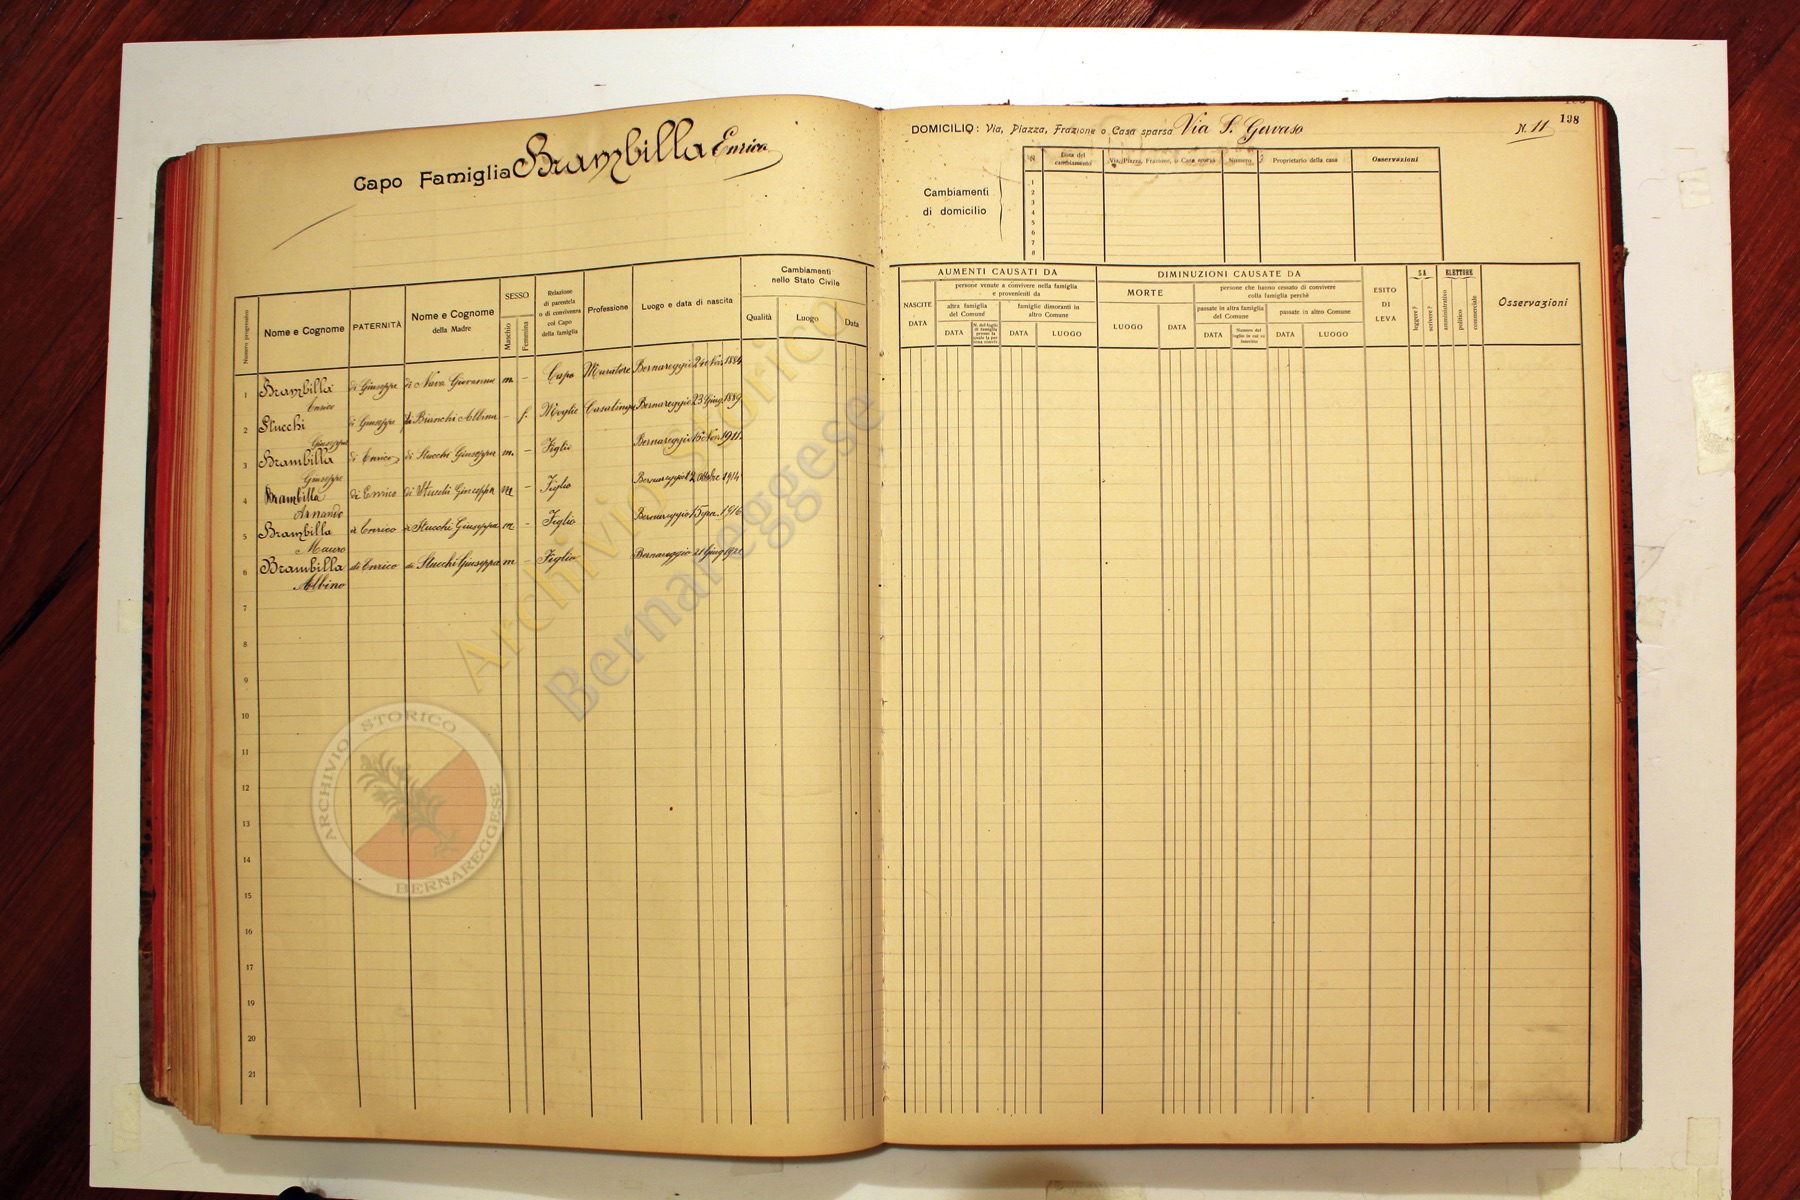 Capo Famiglia Brambilla Enrico
Numero progressivo
Nome e Cognome
PATERNITÀ
Nome e Cognome
della Madre
SESSO
Maschio
Femmina
Relazione
di parentela
o di convivenza
col Capo
della famiglia
Professione
Luogo e data di nascita
Cambiamenti
nello Stato Civile
Qualità
Luogo
Data
1 Brambilla Enrico di Giuseppe di Nava Giovanna m - Capo Muratore Bernareggio 24 Nov. 1884
2 Stucchi Giuseppa di Giuseppe di Bianchi Albina - f. Moglie Casalinga Bernareggio 23 Giug. 1889
3 Brambilla Giuseppe di Enrico di Stucchi Giuseppa m. - Figlio Bernareggio Nov. 1911
4 Brambilla Armando di Enrico di Stucchi Giuseppa m - Figlio Bernareggio 12 Ottobre 1914
5 Brambilla Mauro di Enrico di Stucchi Giuseppa m - Figlio Bernareggio 15 1916
6 Brambilla Albino di Enrico di Stucchi Giuseppa m - Figlio Bernareggio 21 Giug.
7
8
9
10
11
12
13
14
15
16
17
18
19
20
21
Archivio Storico
Bernareggese
ARCHIVIO STORICO
BERNAREGGESE
198
DOMICILIO: Via, Piazza, Frazione o Casa sparsa Via S. Gervaso
N. 11
Cambiamenti
di domicilio
N.
Data del
cambiamento
Via, Piazza, Frazione, o Casa sparsa
Numero
Proprietario della casa
Osservazioni
1
2
3
4
5
6
7
8
AUMENTI CAUSATI DA
NASCITE
DATA
persone venute a convivere nella famiglia
e provenienti da
altra famiglia
del Comune
DATA
N. del foglio
di famiglia
famiglie dimoranti in
altro Comune
DATA
LUOGO
DIMINUZIONI CAUSATE DA
MORTE
LUOGO
DATA
persone che hanno cessato di convivere
colla famiglia perchè
passate in altra famiglia
del Comune
DATA
Numero del
foglio in cui si
inscrive
passate in altro Comune
DATA
LUOGO
ESITO
DI
LEVA
SA
leggere?
scrivere?
ELETTORE
amministrativo
politico
commerciale
Osservazioni